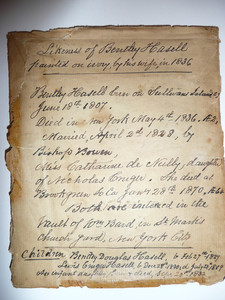 Likness of Bentley Hasell
painted on ivory by his wife, in 1836
Bentley Hasell Born on Sullivan Island,
June 18th 1807.
Died in New York May 4th 1836. AE
Married, April 2nd 1828, by
Bishop Bowen
Miss Catharine de Nully, daughter
of Nicholas Cruger. She died at
Brooklyn Jany 28th 1870, AE
Both are interred in the
Vault of Wm Bard in St Marks
Church yard, New York City
Children Bentley Douglas Hasell, b Feb 27th
Lewis Cruger Hasell, b
an infant daughter born & died